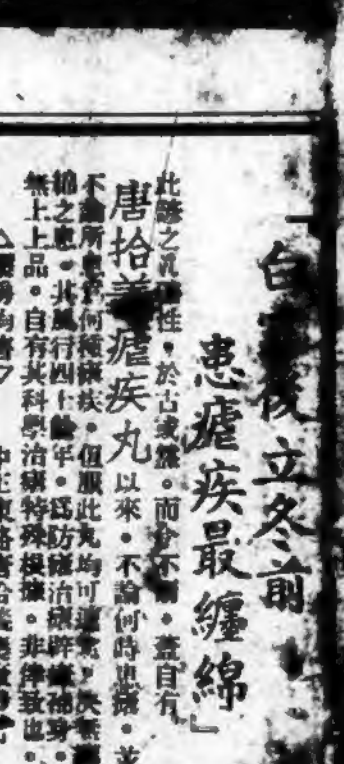 「白露後立冬前
患瘧疾最纏綿」
此諺之性。於古或然。而今不爾。蓋自有
唐拾義瘧疾丸以來。不論何時患瘧。並
不論所患爲何種瘧疾。但服此丸均可速愈。決無纏
綿之患。其風行四十餘年。爲防瘧治瘧辟瘴補身。
無上上品。自有其科學治瘧特殊根據。非倖致也。